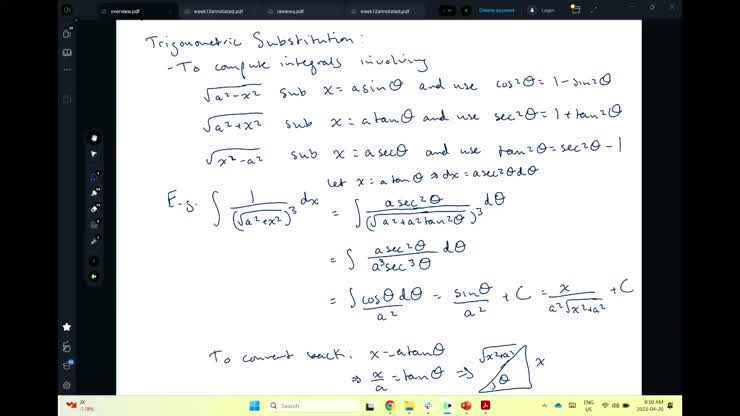 overview.pdf
week12annotated.pdf
reviews.pdf
week12annotated.pdf
Create account
Login
Trigonometric Substitution:
- To compute integrals involving
√(a²-x²) sub x = a sinθ and use cos²θ = 1 - sin²θ
√(a²+x²) sub x = a tanθ and use sec²θ = 1 + tan²θ
√(x²-a²) sub x = a secθ and use tan²θ = sec²θ - 1
Let x = a tanθ ⇒ dx = a sec²θ dθ
E.g. ∫ 1/(√(a²+x²))³ dx = ∫ a sec²θ/(√(a²+a²tan²θ))³ dθ
= ∫ a sec²θ/(a³ sec³θ) dθ
= ∫ cosθ dθ/a² = sinθ/a² + C = x/(a²√(x²+a²)) + C
To convert back: x = a tanθ
⇒ x/a = tanθ ⇒ √(x²+a²) θ x
Search
ENG
US
9:10 AM
2023-04-20